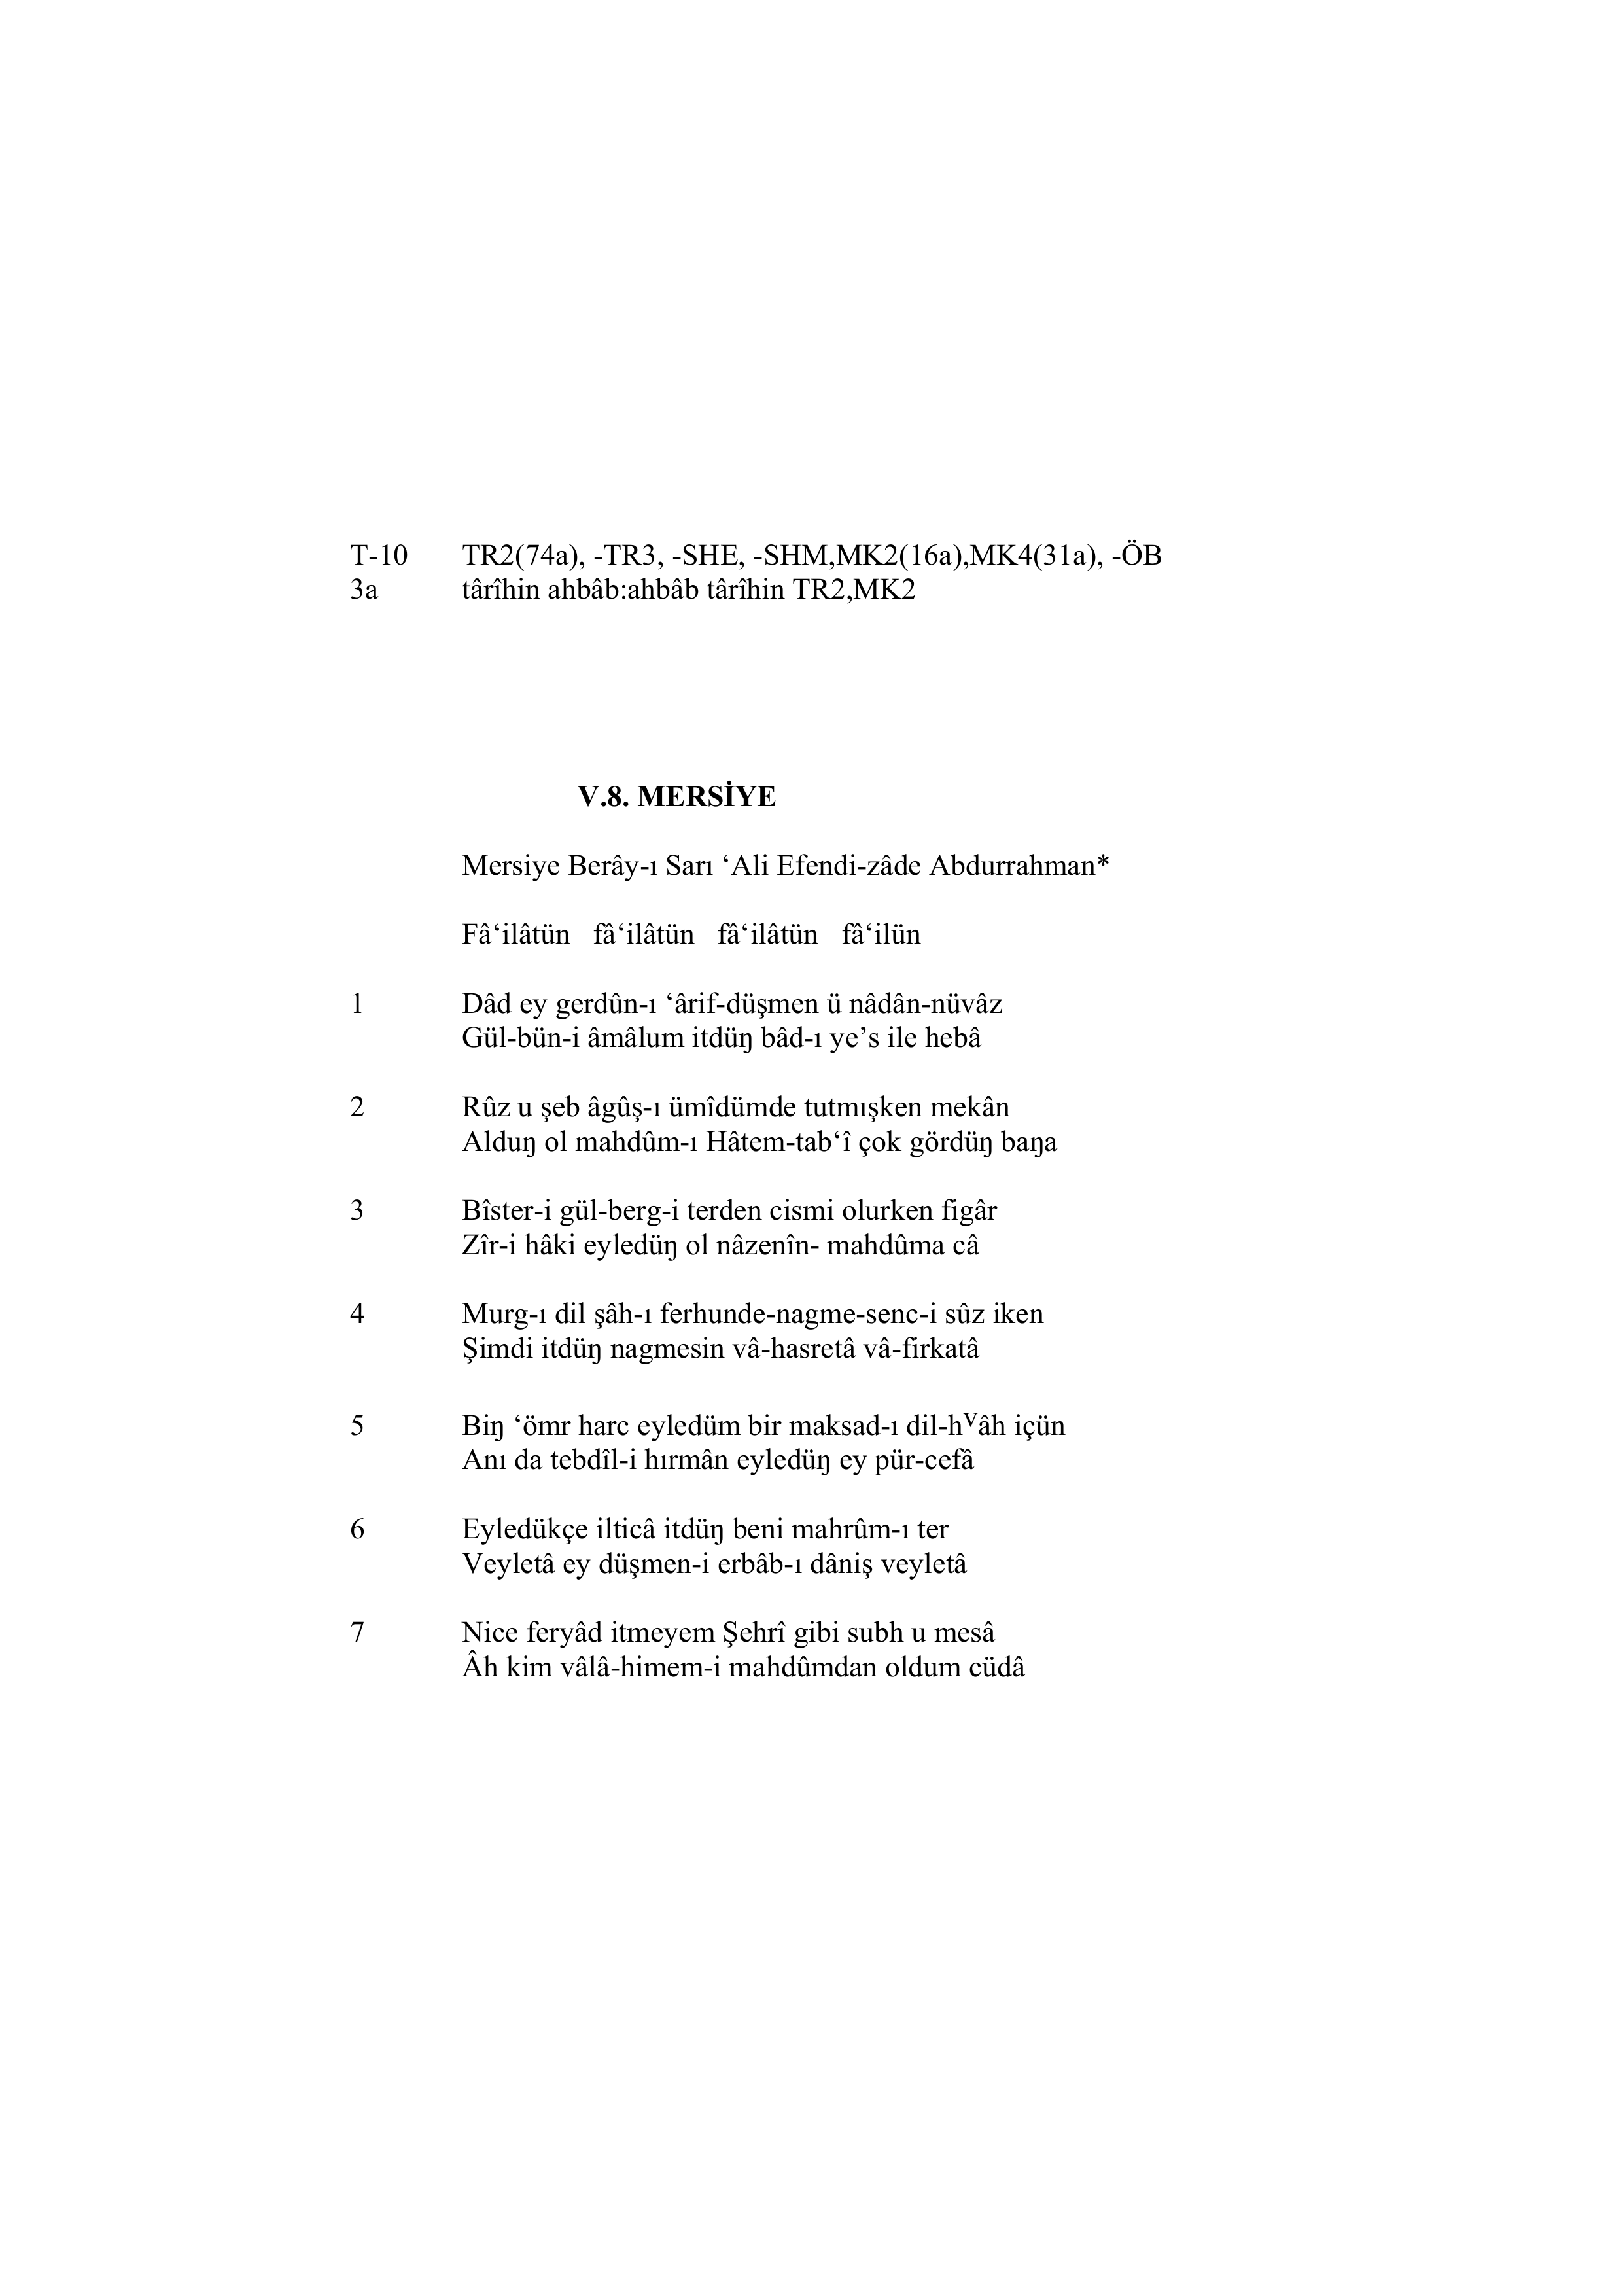 T-10 TR2(74a), -TR3, -SHE, -SHM,MK2(16a),MK4(31a), -ÖB
3a târîhin ahbâb:ahbâb târîhin TR2,MK2
V.8. MERSİYE
Mersiye Berây-ı Sarı ‘Ali Efendi-zâde Abdurrahman*
Fâ‘ilâtün fâ‘ilâtün fâ‘ilâtün fâ‘ilün
1 Dâd ey gerdûn-ı ‘ârif-düşmen ü nâdân-nüvâz
Gül-bün-i âmâlum itdüŋ bâd-ı ye’s ile hebâ
2 Rûz u şeb âgûş-ı ümîdümde tutmışken mekân
Alduŋ ol mahdûm-ı Hâtem-tab‘î çok gördüŋ baŋa
3 Bîster-i gül-berg-i terden cismi olurken figâr
Zîr-i hâki eyledüŋ ol nâzenîn- mahdûma câ
4 Murg-ı dil şâh-ı ferhunde-nagme-senc-i sûz iken
Şimdi itdüŋ nagmesin vâ-hasretâ vâ-firkatâ
5 Biŋ ‘ömr harc eyledüm bir maksad-ı dil-hᵛâh içün
Anı da tebdîl-i hırmân eyledüŋ ey pür-cefâ
6 Eyledükçe ilticâ itdüŋ beni mahrûm-ı ter
Veyletâ ey düşmen-i erbâb-ı dâniş veyletâ
7 Nice feryâd itmeyem Şehrî gibi subh u mesâ
Âh kim vâlâ-himem-i mahdûmdan oldum cüdâ